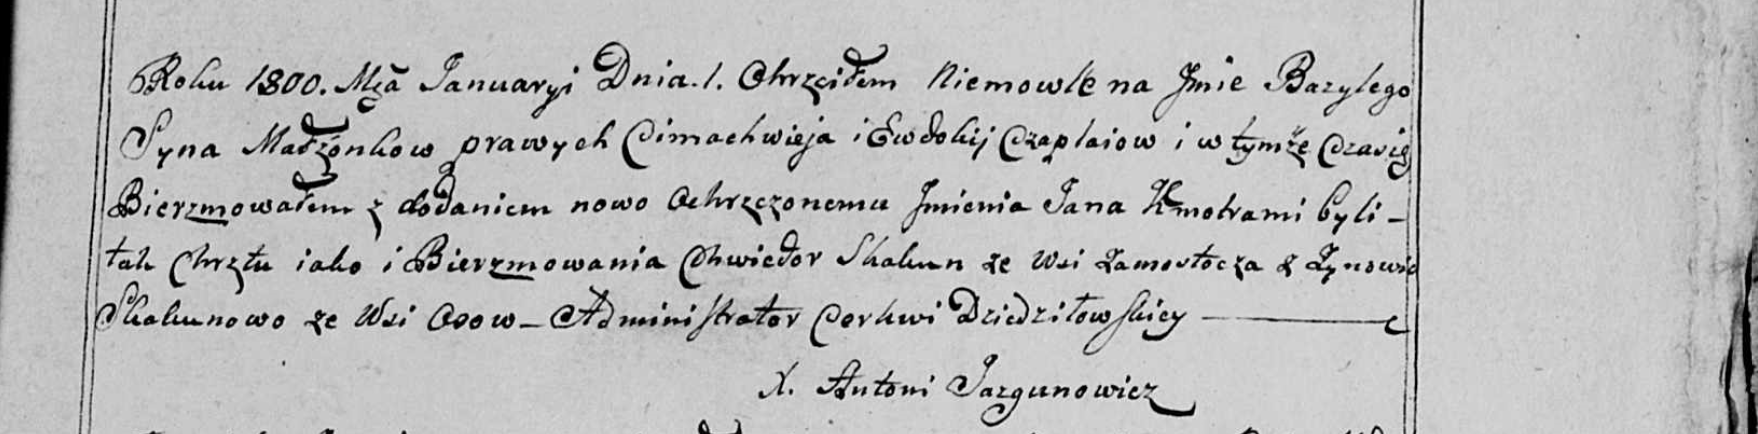 Roku 1800. Mca Januaryi Dnia. 1. Ochrzciłem Niemowle na Jmie Bazylego
Syna Małżonkow prawych Cimachwieja i Ewdokij Czaplaiow i w tymże Czasie
Bierzmowałem z dodaniem nowo Ochrzczonemu Jmienia Jana Kmotrami byli –
tak Chrztu iako i Bierzmowania Chwiedor Skakun ze Wsi Zamostocza z Zynowio
Skakunowo ze Wsi Osow – Administrator Cerkwi Dziedziłowskiey
X. Antoni Jazgunowicz